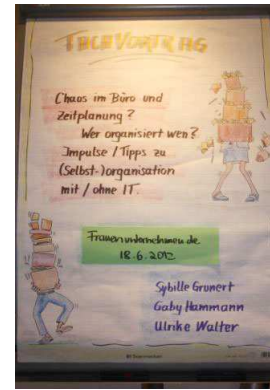 FACHVORTRAG
Chaos im Büro und
Zeitplanung?
Wer organisiert wen?
Impulse / Tipps zu
(Selbst-)organisation
mit / ohne IT.
Frauenunternehmen.de
18.6.2012
Sybille Grunert
Gaby Hammann
Ulrike Walter